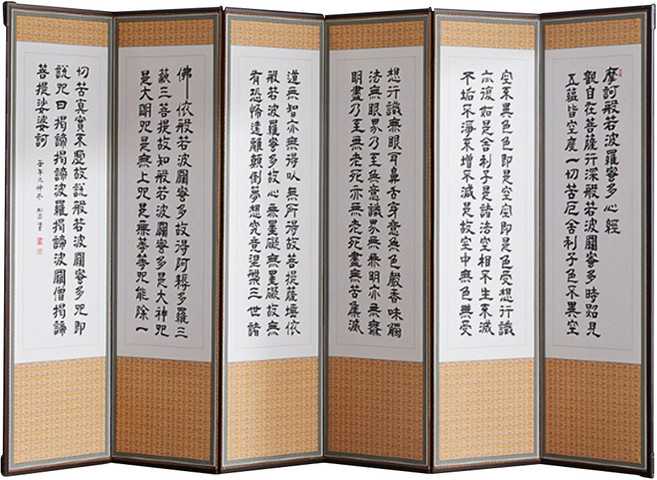 摩訶般若波羅蜜多心經
觀自在菩薩行深般若波羅蜜多時照見
五蘊皆空度一切苦厄舍利子色不異空
空不異色色即是空空即是色受想行識
亦復如是舍利子是諸法空相不生不滅
不垢不淨不增不減是故空中無色無受
想行識無眼耳鼻舌身意無色聲香味觸
法無眼界乃至無意識界無無明亦無無
明盡乃至無老死亦無老死盡無苦集滅
道無智亦無得以無所得故菩提薩埵依
般若波羅蜜多故心無罣礙無罣礙故無
有恐怖遠離顛倒夢想究竟涅槃三世諸
佛依般若波羅蜜多故得阿耨多羅三
藐三菩提故知般若波羅蜜多是大神咒
是大明咒是無上咒是無等等咒能除一
切苦真實不虛故說般若波羅蜜多咒即
說咒曰揭諦揭諦波羅揭諦波羅僧揭諦
菩提娑婆訶